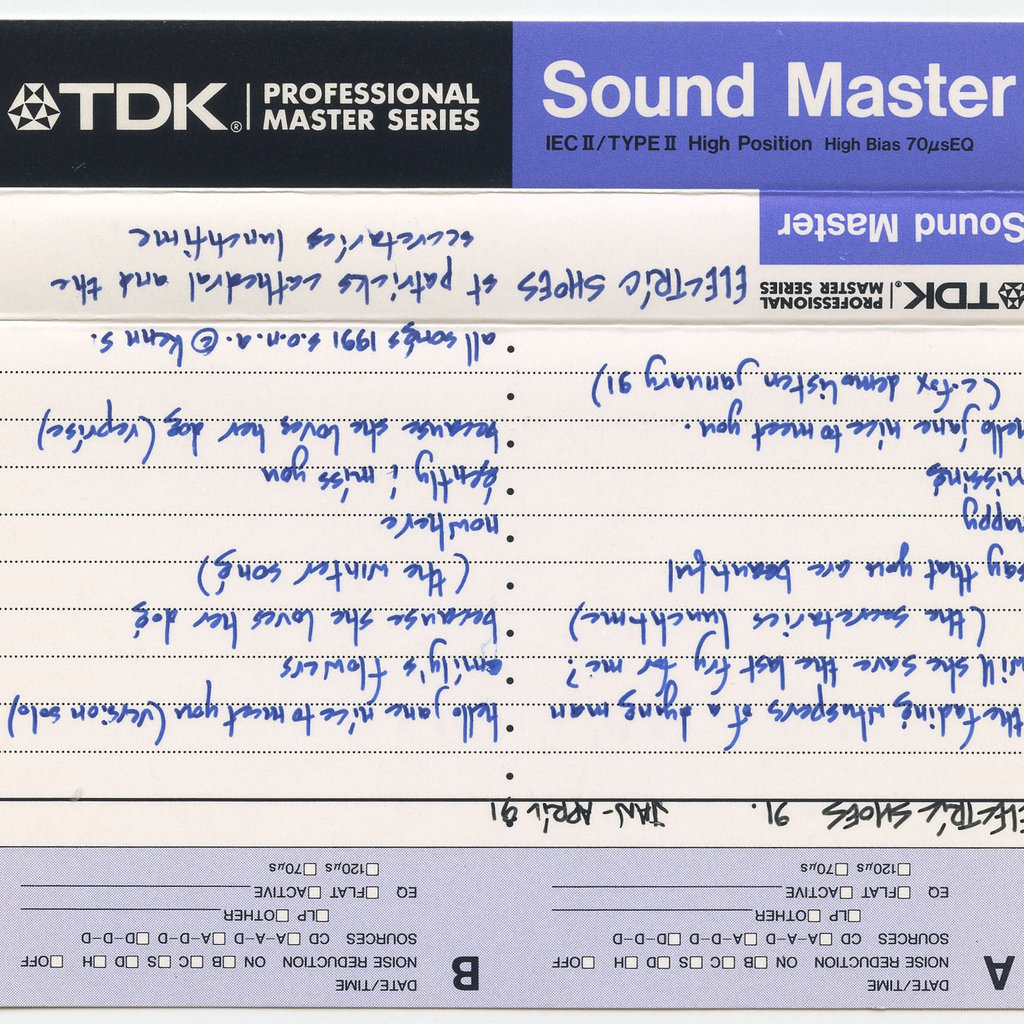 TDK® PROFESSIONAL MASTER SERIES
Sound Master
IEC II/TYPE II High Position High Bias 70μsEQ
Sound Master
TDK® PROFESSIONAL MASTER SERIES
ELECTRIC SHOES st patricks cathedral and the
secretaries lunchtime
A
DATE/TIME
NOISE REDUCTION ON □B □C □S □D □H □OFF
SOURCES CD □A-A-D □A-D-D □D-D-D
□LP □OTHER
EQ □FLAT □ACTIVE
□120μs □70μs
B
DATE/TIME
NOISE REDUCTION ON □B □C □S □D □H □OFF
SOURCES CD □A-A-D □A-D-D □D-D-D
□LP □OTHER
EQ □FLAT □ACTIVE
□120μs □70μs
ELECTRIC SHOES 91. JAN-APRIL 91
the fading whispers of a dying man
will she save the last fry for me?
(the secretaries lunchtime)
say that you are beautiful
happy
missing
hello jane nice to meet you.
(c-fox demolisten january 91)
hello jane nice to meet you (version solo)
emily's flowers
because she loves her dog
(the winter song)
nowhere
gently i miss you
because she loves her dog (reprise)
all songs 1991 s.o.n.a. © kenn s.